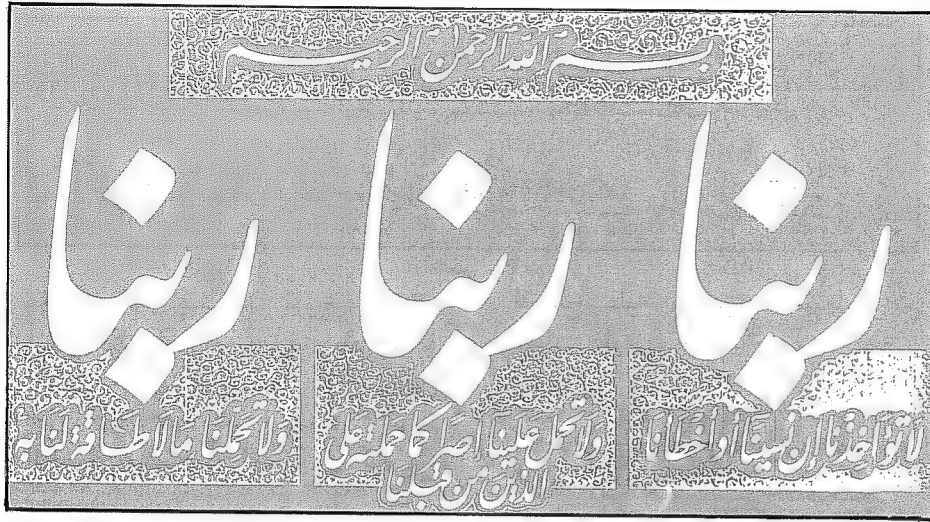 بسم الله الرحمن الرحيم
ربنا
لا تؤاخذنا إن نسينا أو أخطأنا
ربنا
ولا تحمل علينا إصرا كما حملته على
الذين من قبلنا
ربنا
ولا تحملنا ما لا طاقة لنا به